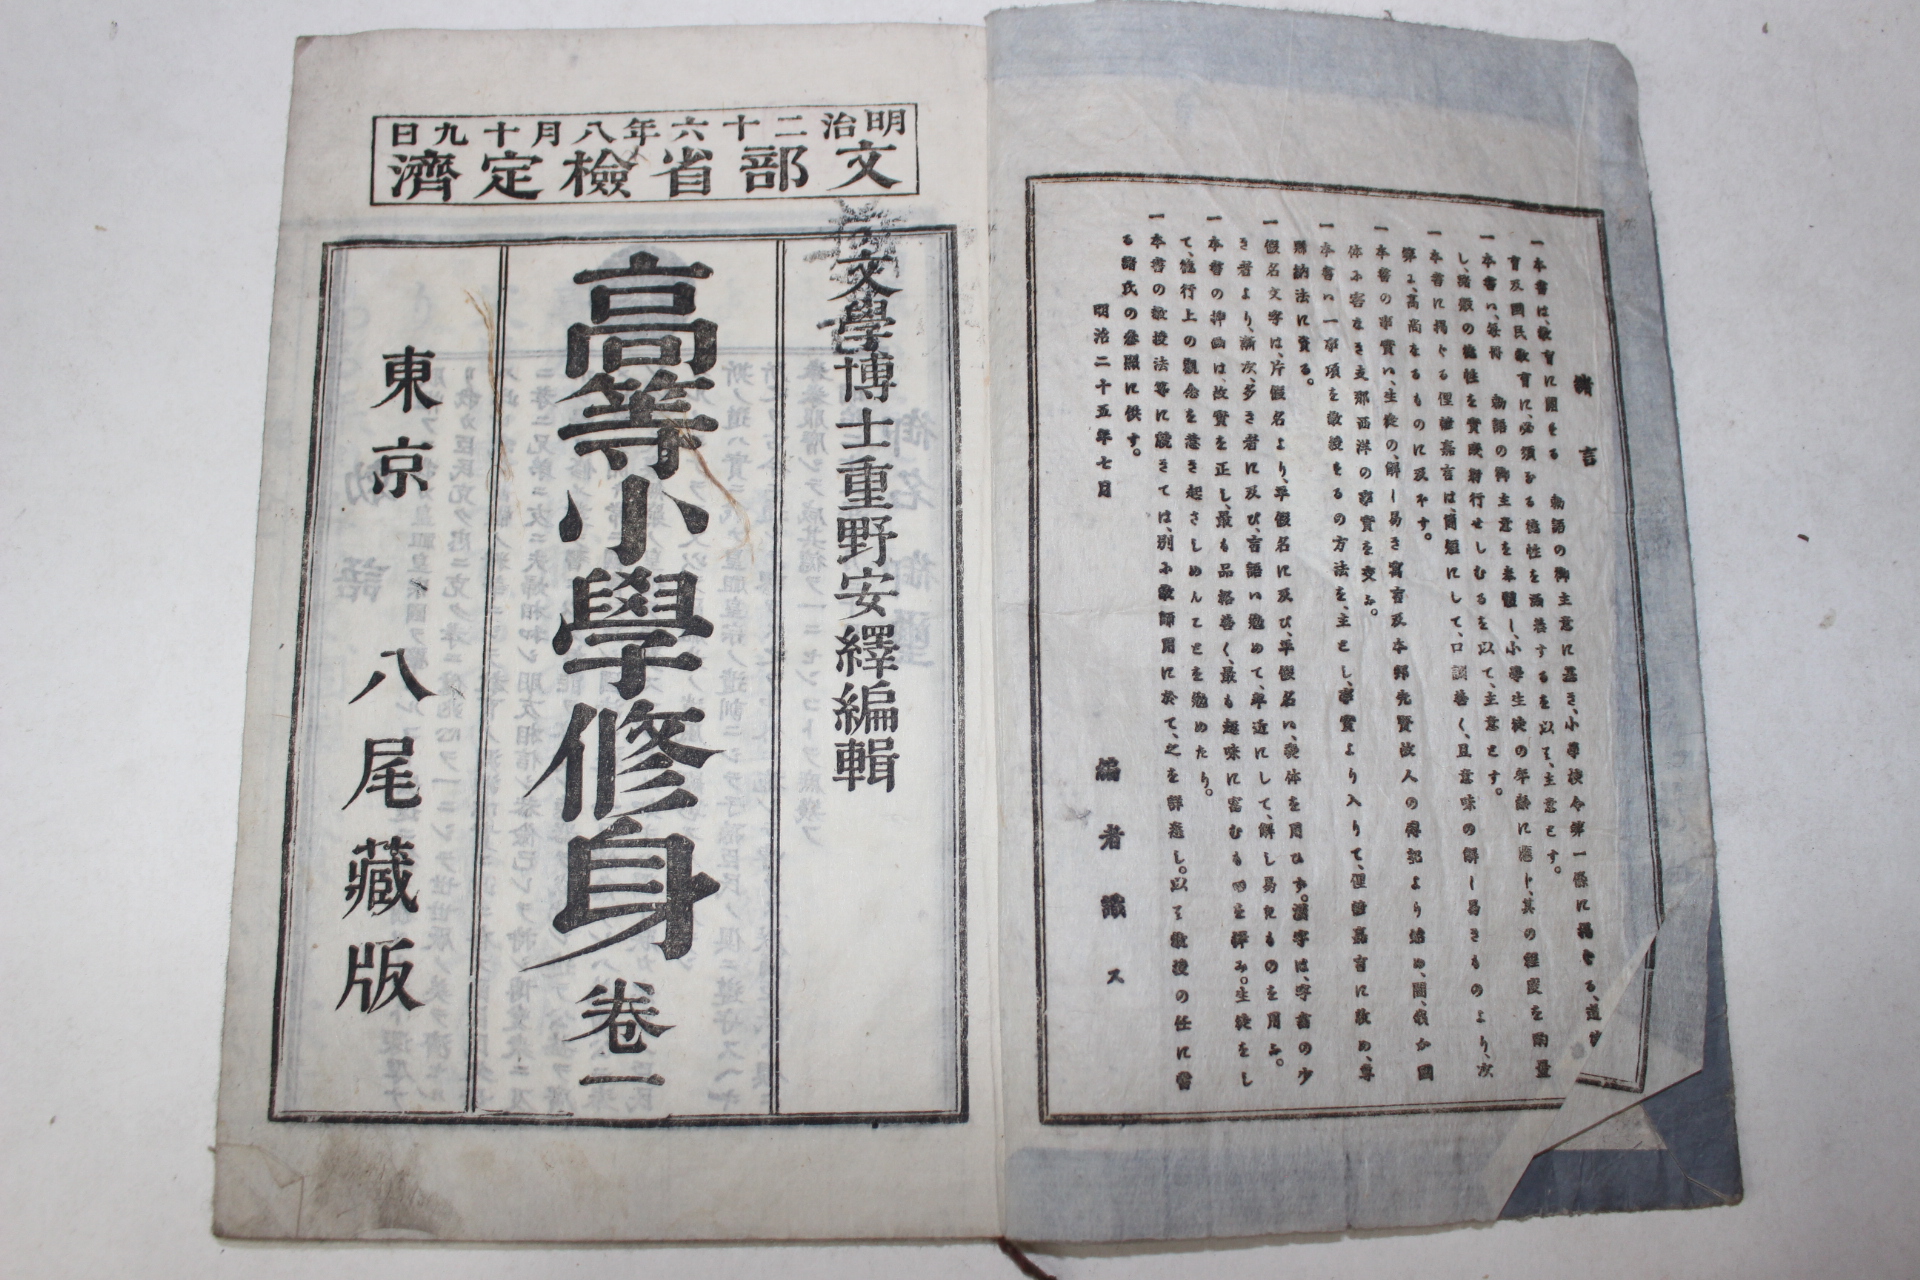 緒言
一本書は、教育に関する　勅語の御主意に基き、小學校令第一條に掲ぐる、道徳
育及國民教育に、必須なる徳性を涵養するを以て、主意とす。
一本書ハ、毎科　勅語の御主意を奉體し、小學生徒の年齢に應じ、其の程度を酌量
し、諸般の徳性を實踐躬行せしむるを以て、主意とす。
一本書に掲ぐる俚諺嘉言は、簡短にして、口調善く、且意味の解し易きものより、次
第に、高尚なるものに及ぼす。
一本書の事實ハ、生徒の、解し易き寓言及本邦先賢故人の傳記より始め、間、我が國
体に害なき支那西洋の事實を交ふ。
一本書ハ一事項を教授するの方法を、主とし、事實より入りて、俚諺嘉言に收め、專
歸納法に資る。
一假名文字は、片假名より、平假名に及び、平假名ハ、變体を用ひず。漢字は、字畫の少
き者より、漸次、多き者に及び、言語ハ勉めて、卑近にして、解し易きものを用ふ。
一本書の挿画は、故實を正し、最も品格善く、最も趣味に富むものを擇み。生徒をし
て、徳行上の觀念を惹き起さしめんことを勉めたり。
一本書の教授法等に就きては、別に教師用に於て、之を詳悉し。以て教授の任に當
る諸氏の參照に供す。
明治二十五年七月
編者識ス
明治二十六年八月十九日
文部省檢定濟
文學博士重野安繹編輯
高等小學修身 卷一
東京 八尾藏版